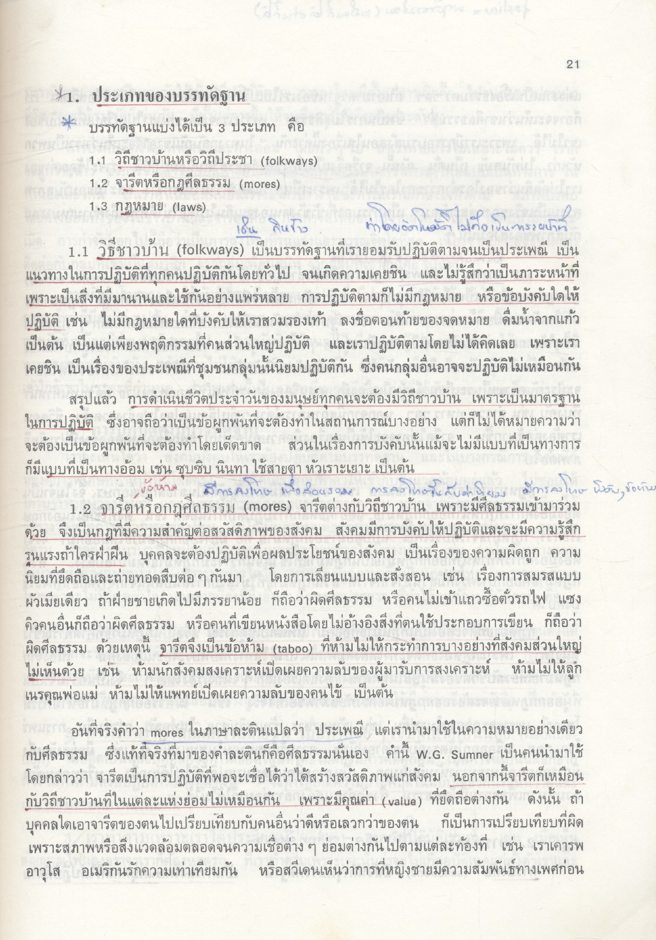 21
*1. ประเภทของบรรทัดฐาน
* บรรทัดฐานแบ่งได้เป็น 3 ประเภท คือ
1.1 วิถีชาวบ้านหรือวิถีประชา (folkways)
1.2 จารีตหรือกฎศีลธรรม (mores)
1.3 กฎหมาย (laws)
เช่น
1.1 วิธีชาวบ้าน (folkways) เป็นบรรทัดฐานที่เรายอมรับปฏิบัติตามจนเป็นประเพณี เป็น
แนวทางในการปฏิบัติที่ทุกคนปฏิบัติกันโดยทั่วไป จนเกิดความเคยชิน และไม่รู้สึกว่าเป็นภาระหน้าที่
เพราะเป็นสิ่งที่มีมานานและใช้กันอย่างแพร่หลาย การปฏิบัติตามก็ไม่มีกฎหมาย หรือข้อบังคับใดให้
ปฏิบัติ เช่น ไม่มีกฎหมายใดที่บังคับให้เราสวมรองเท้า ลงชื่อตอนท้ายของจดหมาย ดื่มน้ำจากแก้ว
เป็นต้น เป็นแต่เพียงพฤติกรรมที่คนส่วนใหญ่ปฏิบัติ และเราปฏิบัติตามโดยไม่ได้คิดเลย เพราะเรา
เคยชิน เป็นเรื่องของประเพณีที่ชุมชนกลุ่มนั้นนิยมปฏิบัติกัน ซึ่งคนกลุ่มอื่นอาจจะปฏิบัติไม่เหมือนกัน
สรุปแล้ว การดำเนินชีวิตประจำวันของมนุษย์ทุกคนจะต้องมีวิถีชาวบ้าน เพราะเป็นมาตรฐาน
ในการปฏิบัติ ซึ่งอาจถือว่าเป็นข้อผูกพันที่จะต้องทำในสถานการณ์บางอย่าง แต่ก็ไม่ได้หมายความว่า
จะต้องเป็นข้อผูกพันที่จะต้องทำโดยเด็ดขาด ส่วนในเรื่องการบังคับนั้นแม้จะไม่มีแบบที่เป็นทางการ
ก็มีแบบที่เป็นทางอ้อม เช่น ซุบซิบ นินทา ใช้สายตา หัวเราะเยาะ เป็นต้น
ข้อห้าม มีการลงโทษ
1.2 จารีตหรือกฎศีลธรรม (mores) จารีตต่างกับวิถีชาวบ้าน เพราะมีศีลธรรมเข้ามาร่วม
ด้วย จึงเป็นกฎที่มีความสำคัญต่อสวัสดิภาพของสังคม สังคมมีการบังคับให้ปฏิบัติและจะมีความรู้สึก
รุนแรงถ้าใครฝ่าฝืน บุคคลจะต้องปฏิบัติเพื่อผลประโยชน์ของสังคม เป็นเรื่องของความผิดถูก ความ
นิยมที่ยึดถือและถ่ายทอดสืบต่อๆกันมา โดยการเลียนแบบและสั่งสอน เช่น เรื่องการสมรสแบบ
ผัวเมียเดียว ถ้าฝ่ายชายเกิดไปมีภรรยาน้อย ก็ถือว่าผิดศีลธรรม หรือคนไม่เข้าแถวซื้อตั๋วรถไฟ แซง
คิวคนอื่นก็ถือว่าผิดศีลธรรม หรือคนที่เขียนหนังสือโดยไม่อ้างอิงสิ่งที่ตนใช้ประกอบการเขียน ก็ถือว่า
ผิดศีลธรรม ด้วยเหตุนี้ จารีตจึงเป็นข้อห้าม (taboo) ที่ห้ามไม่ให้กระทำการบางอย่างที่สังคมส่วนใหญ่
ไม่เห็นด้วย เช่น ห้ามนักสังคมสงเคราะห์เปิดเผยความลับของผู้มารับการสงเคราะห์ ห้ามไม่ให้ลูก
เนรคุณพ่อแม่ ห้ามไม่ให้แพทย์เปิดเผยความลับของคนไข้ เป็นต้น
อันที่จริงคำว่า mores ในภาษาละตินแปลว่า ประเพณี แต่เรานำมาใช้ในความหมายอย่างเดียว
กับศีลธรรม ซึ่งแท้ที่จริงที่มาของคำละตินก็คือศีลธรรมนั่นเอง คำนี้ W.G. Sumner เป็นคนนำมาใช้
โดยกล่าวว่า จารีตเป็นการปฏิบัติที่พอจะเชื่อได้ว่าได้สร้างสวัสดิภาพแก่สังคม นอกจากนี้จารีตก็เหมือน
กับวิถีชาวบ้านที่ในแต่ละแห่งย่อมไม่เหมือนกัน เพราะมีคุณค่า (value) ที่ยึดถือต่างกัน ดังนั้น ถ้า
บุคคลใดเอาจารีตของตนไปเปรียบเทียบกับคนอื่นว่าดีหรือเลวกว่าของตน ก็เป็นการเปรียบเทียบที่ผิด
เพราะสภาพหรือสิ่งแวดล้อมตลอดจนความเชื่อต่างๆ ย่อมต่างกันไปตามแต่ละท้องที่ เช่น เราเคารพ
อาวุโส อเมริกันรักความเท่าเทียมกัน หรือสวีเดนเห็นว่าการที่หญิงชายมีความสัมพันธ์ทางเพศก่อน